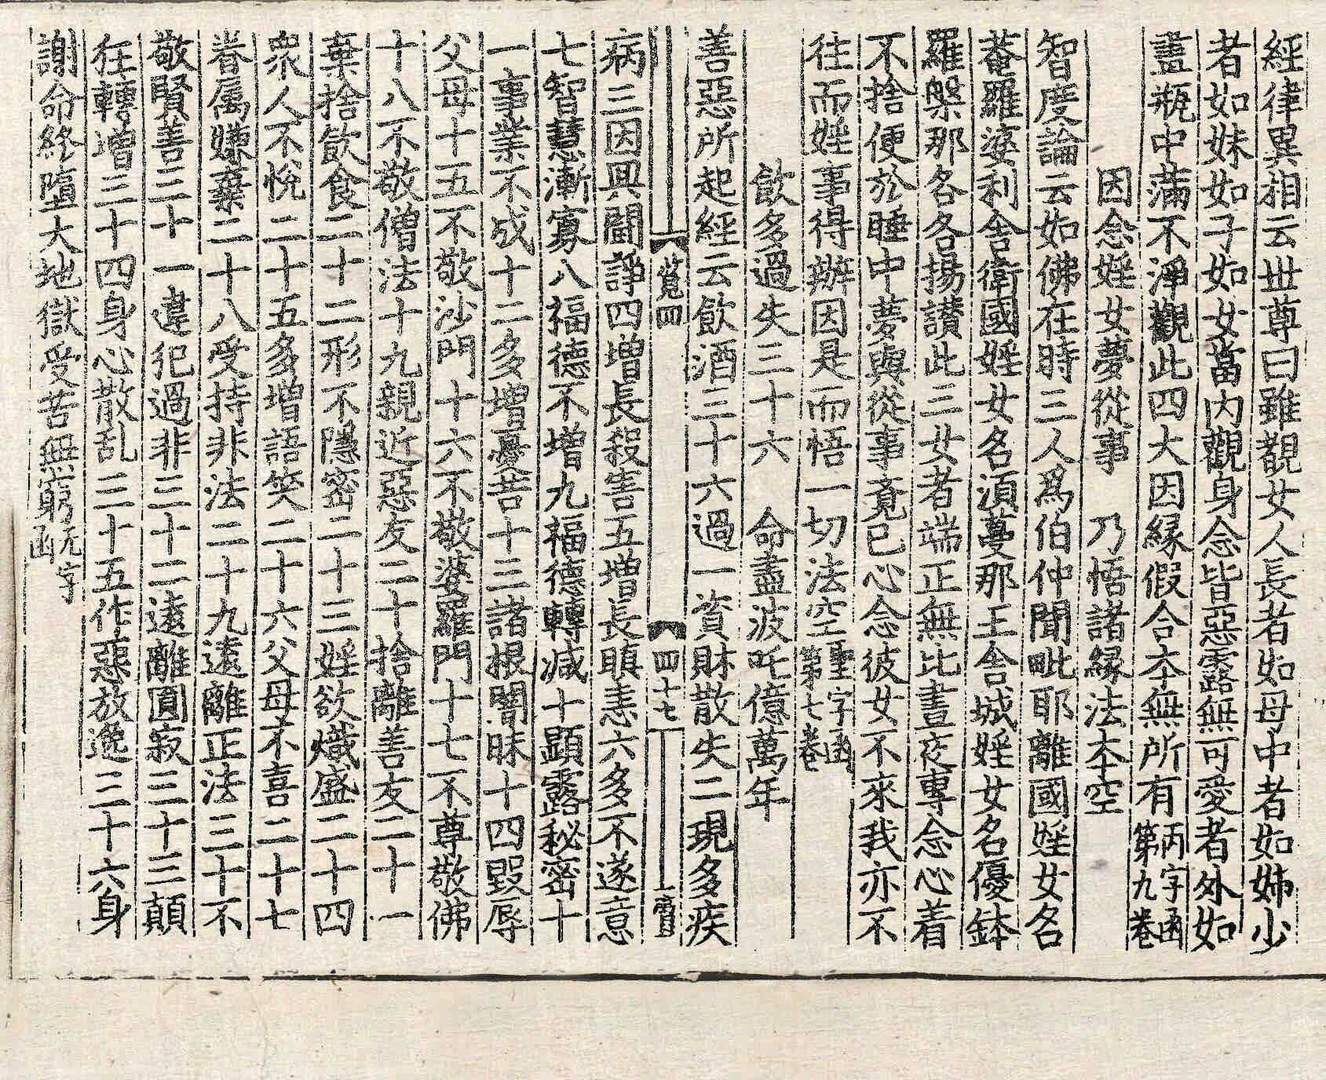 經律異相云世尊曰雖覩女人長者如母中者如姉少
者如妹如子如女當內觀身念皆惡露無可愛者外如
畫瓶中滿不淨觀此四大因緣假合本無所有丙字函第九卷
因念婬女夢從事　乃悟諸緣法本空
智度論云如佛在時三人爲伯仲聞毗耶離國婬女名
菴羅婆利舍衛國婬女名湏蔓那王舍城婬女名優鉢
羅槃那各各揚讃此三女者端正無比晝夜專念心着
不捨便於睡中夢與從事竟已心念彼女不來我亦不
往而婬事得辦因是而悟一切法空聖字函第七卷
飲多過失三十六　命盡波吒億萬年
善惡所起經云飲酒三十六過一資財散失二現多疾
覓四　四十七
病三因興鬪諍四增長殺害五增長瞋恚六多不遂意
七智慧漸寡八福德不增九福德轉减十顯露秘密十
一事業不成十二多增憂苦十三諸根闇昧十四毀辱
父母十五不敬沙門十六不敬婆羅門十七不尊敬佛
十八不敬僧法十九親近惡友二十捨離善友二十一
棄捨飲食二十二形不隱密二十三婬欲熾盛二十四
衆人不悅二十五多增語笑二十六父母不喜二十七
眷属嫌棄二十八受持非法二十九遠離正法三十不
敬賢善三十一違犯過非三十二遠離圓寂三十三顛
狂轉增三十四身心散乱三十五作惡放逸三十六身
謝命終墮大地獄受苦無窮无字函